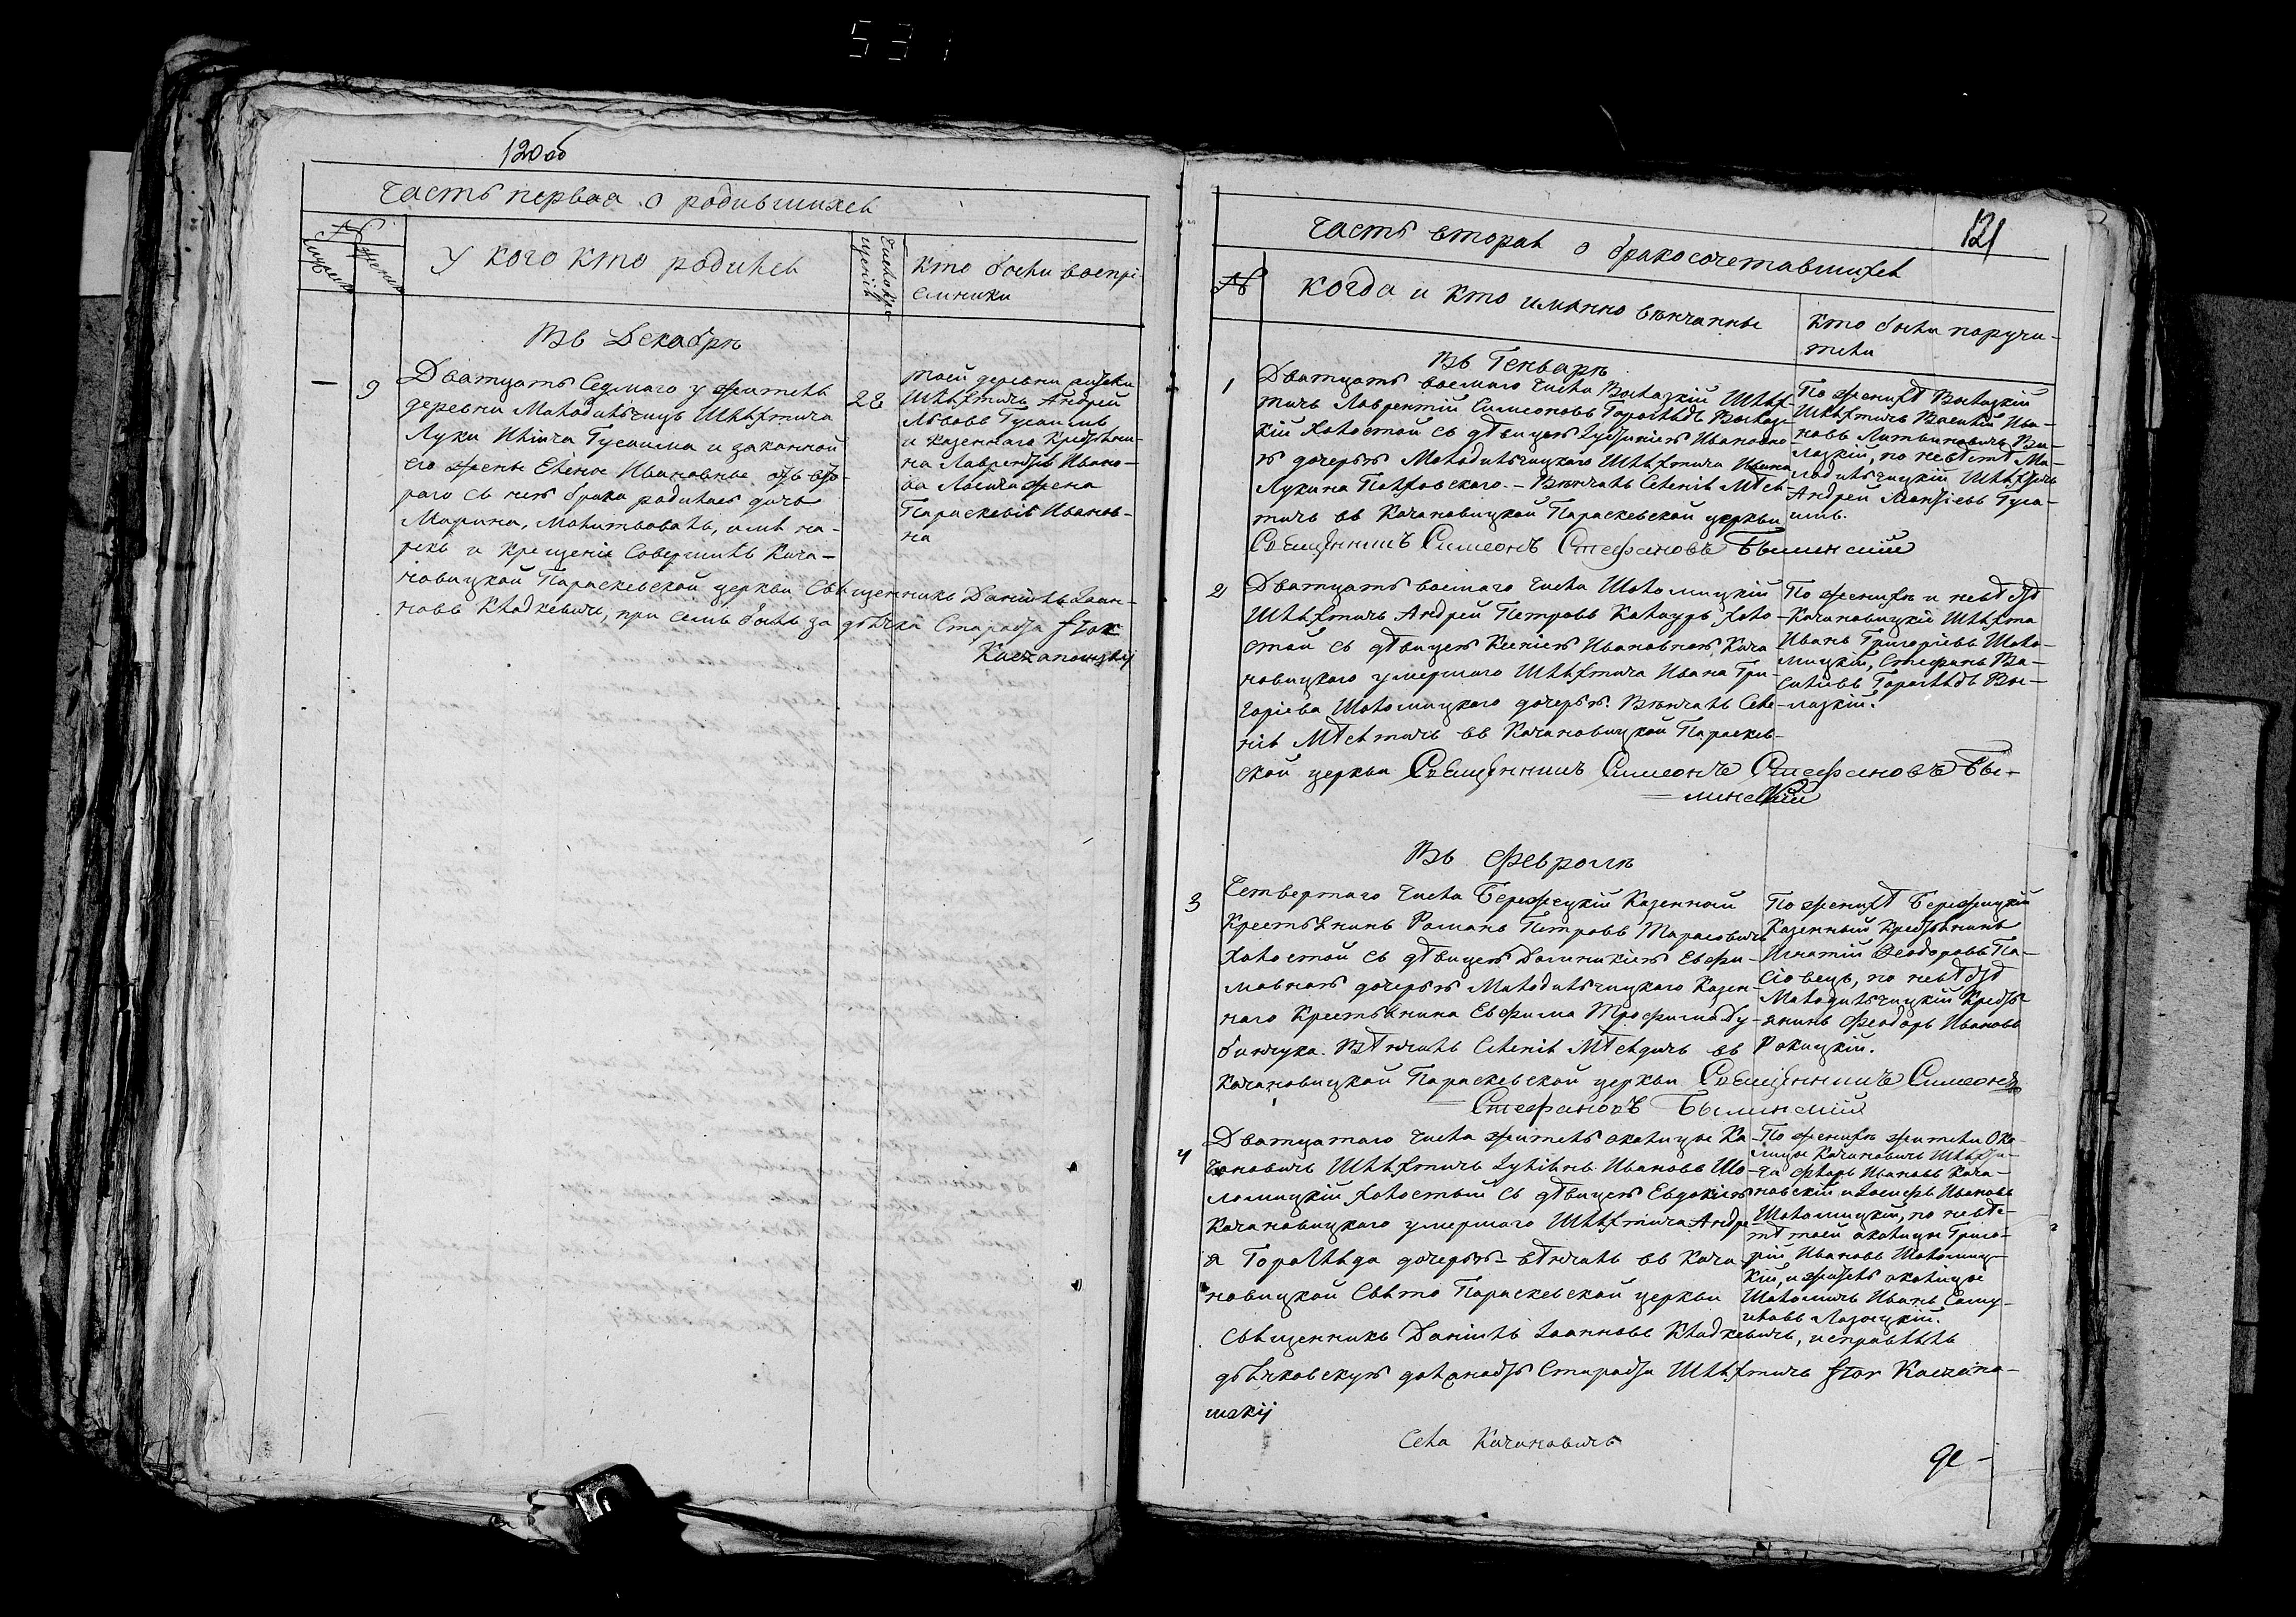 531
120об
Часть первая о родившихся
№
У кого кто родился
Число крещенія
кто были воспрі
емники
Въ Декабрѣ
— 9 Дватцать Седмаго у жителя
деревни Малодѣльчицъ Шляхтича
Луки Ильича Гусаима и законной
его жены Елены Ивановны отъ вто-
раго съ нею брака родилась дочь
Марина, молитвовалъ, имя на-
рекъ и крещеніе Совершилъ Кача-
новицкой Параскевской церкви Священникъ Даніилъ Іоан-
новъ Кладкевичъ, при семъ былъ за дьячка Стараста Flor
Kaczanowskij
28
тоей деревни жители
Шляхтичъ Андрей
Львовъ Гусаимъ
и казеннаго Крестьяни-
на Лаврентія Ивано-
ва жена
Параскевія Иванов-
на
121
Часть вторая о бракосочетавшихся
№
когда и кто именно вѣнчанны
кто были поручи-
тели
Въ Генварѣ
1 Дватцать восмаго числа Вылазкій Шлях-
тичъ Лаврентій Симеоновъ Гораглядъ Вылаз-
кій холостой съ дѣвицею Іустиніею Ивановно-
ю дочерью Малодѣльчицкаго Шляхтича Ивана
Лукина Патховскаго. – Вѣнчалъ Селенія Мѣс-
тичъ въ Качановицкой Параскевской церкви
Священникъ Симеонъ Стефановъ Былинскій
По женихѣ Вылазкій
Шляхтичъ Василій Ива-
новъ Литвиновичъ Вы-
лазкій, по невѣстѣ Ма-
лодѣльчицкій Шляхтичъ
Андрей Гуса-
имъ.
2 Дватцать восмаго числа Шоломицкій
Шляхтичъ Андрей Петровъ Качауръ холо-
стой съ дѣвицею Ксеніею Ивановною Кача
новицкаго умершаго Шляхтича Ивана Гри-
горіева Шоломицкаго дочерью. Вѣнчалъ Селе-
нія Мѣстичъ въ Качановицкой Параскев-
ской церкви Священникъ Симеонъ Стефановъ Бы-
линскій
По женихѣ и невѣстѣ
Качановицкіе Шляхта
Иванъ Григоріевъ Шоло-
мицкій, Стефанъ Ва-
силіевъ Гораглядъ Вы-
лазкій.
Въ Февралѣ
3 Четвертаго числа Бережецкій Казенный
Крестьянинъ Романъ Петровъ Тарасовичъ
холостой съ дѣвицею Доминикіею Евфи-
мовною дочерью Малодѣльчицкаго Казен-
наго Крестьянина Евфима Трофима Ду-
бинчука. Вѣнчалъ Селенія Мѣстичъ въ
Качановицкой Параскевской церкви Священникъ Симеонъ
Стефановъ Былинскій
По женихѣ Бережицкій
Казенный Крестьянинъ
Игнатій Ѳеодоровъ Па-
сіовецъ, по невѣстѣ
Малодѣльчицкій Кресть-
янинъ Феодоръ Ивановъ
Ракицкій.
4 Дватцатаго числа житель околицы Ка
чановичъ Шляхтичъ Іуліянъ Ивановъ Шо-
ломицкій холостый съ дѣвицею Евдокіею
Качановицкаго умершаго Шляхтича Андре-
я Горагляда дочерью – вѣнчалъ въ Кача-
новицкой Свято Параскевской церкви
Священникъ Даніилъ Іоанновъ Кладкевичъ, исправлялъ
дьячковскую должность Стараста Шляхтичъ Flor Kaczano-
wskij
По женихѣ жители Око-
лицы Качановичъ Шлях-
та Флоръ Ивановъ Кача-
новскій и Іосифъ Ивановъ
Шоломицкій, по невѣс-
тѣ тоей околицы Григо-
рій Ивановъ Шоломиц-
кій, и житель околицы
Шоломичъ Иванъ Саму-
иловъ Лазицкій.
Села Качановичъ